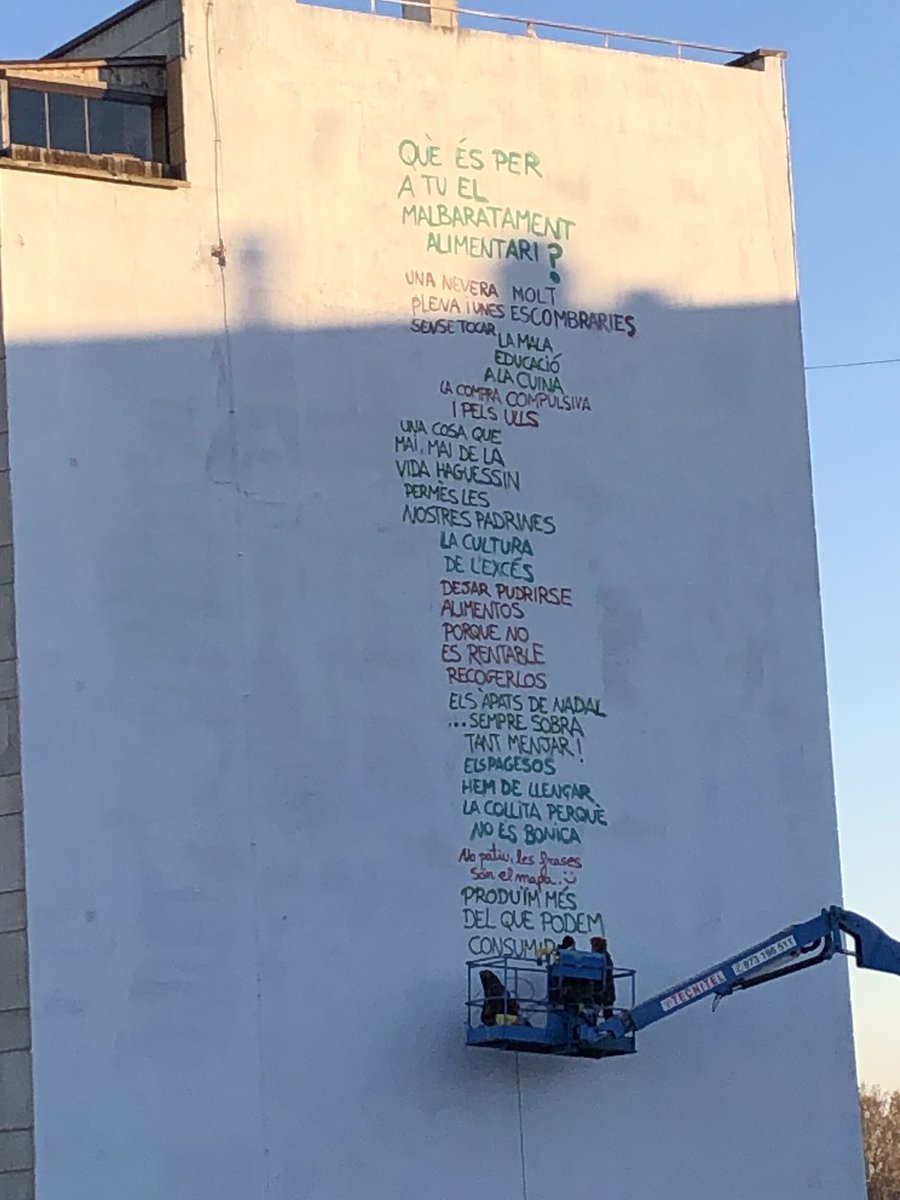 QUÈ ÉS PER
A TU EL
MALBARATAMENT
ALIMENTARI?
UNA NEVERA MOLT
PLENA I UNES ESCOMBRARIES
SENSE TOCAR
LA MALA
EDUCACIÓ
A LA CUINA
LA COMPRA COMPULSIVA
I PELS ULLS
UNA COSA QUE
MAI, MAI DE LA
VIDA HAGUESSIN
PERMÈS LES
NOSTRES PADRINES
LA CULTURA
DE L'EXCÉS
DEJAR PUDRIRSE
ALIMENTOS
PORQUE NO
ES RENTABLE
RECOGERLOS
ELS ÀPATS DE NADAL
...SEMPRE SOBRA
TANT MENJAR!
ELS PAGESOS
HEM DE LLENÇAR
LA COLLITA PERQUÈ
NO ES BONICA
No patiu, les frases
són el mapa.
PRODUÏM MÉS
DEL QUE PODEM
CONSUMIR
TECNITEL
973 196 511